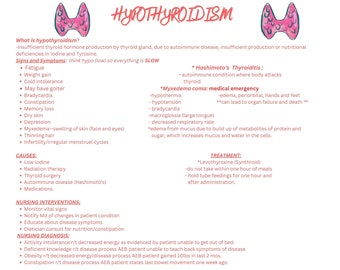 HYPOTHYROIDISM
What is hypothyroidism?
-insufficient thyroid hormone production by thyroid gland, due to autoimmune disease, insufficient production or nutritional
deficiencies in Iodine and Tyrosine.
Signs and Symptoms: think hypo (low) so everything is SLOW
Fatigue
Weight gain
Cold intolerance
May have goiter
Bradycardia
Constipation
Memory loss
Dry skin
Depression
Myxedema--swelling of skin (face and eyes)
Thinning hair
Infertility/irregular menstrual cycles
* Hashimoto's Thyroiditis :
- autoimmune condition where body attacks
thyroid.
*Myxedema coma: medical emergency
-hypothermia
- hypotension
- bradycardia
- macroglossia (large tongue)
- decreased respiratory rate
-edema, periorbital, hands and feet
**can lead to organ failure and death **
*edema from mucus due to build up of metabolites of protein and
sugar, which increases mucus and water in the cells.
CAUSES:
Low iodine
Radiation therapy
Thyroid surgery
Autoimmune disease (Hashimoto's)
Medications
TREATMENT:
*Levothyroxine (Synthroid)
-do not take within one hour of meals
- hold tube feedings for one hour and
after administration.
NURSING INTERVENTIONS:
Monitor vital signs
Notify Md of changes in patient condition
Educate about disease symptoms
Dietician consult for nutrition/constipation
NURSING DIAGNOSIS:
Activity intolerance r/t decreased energy as evidenced by patient unable to get out of bed.
Deficient knowledge r/t disease process AEB patient unable to teach back symptoms of disease.
Obesity r/t decreased energy/disease process AEB patient gained 10lbs in last 2 mos.
Constipation r/t disease process AEB patient states last bowel movement one week ago.